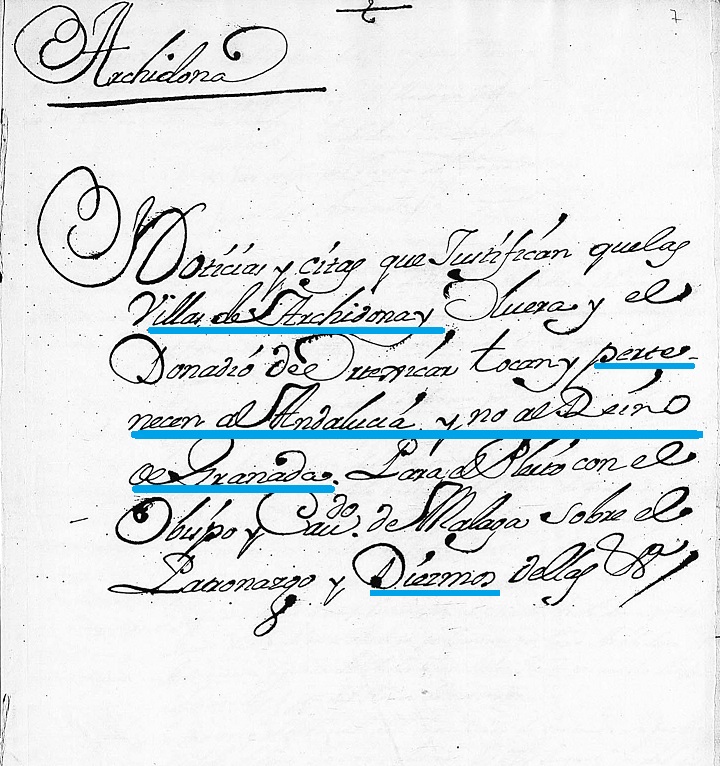 7
Archidona
Noticias y citas que Justifican quelas
Villas de Archidona y Oluera y el
Donadio de Ortexicar tocan y perte-
necen al Andalucia y no al Reino
de Granada. Para el Pleito con el
Obispo y Cau.do de Malaga sobre el
Patronazgo y Diezmos dellas